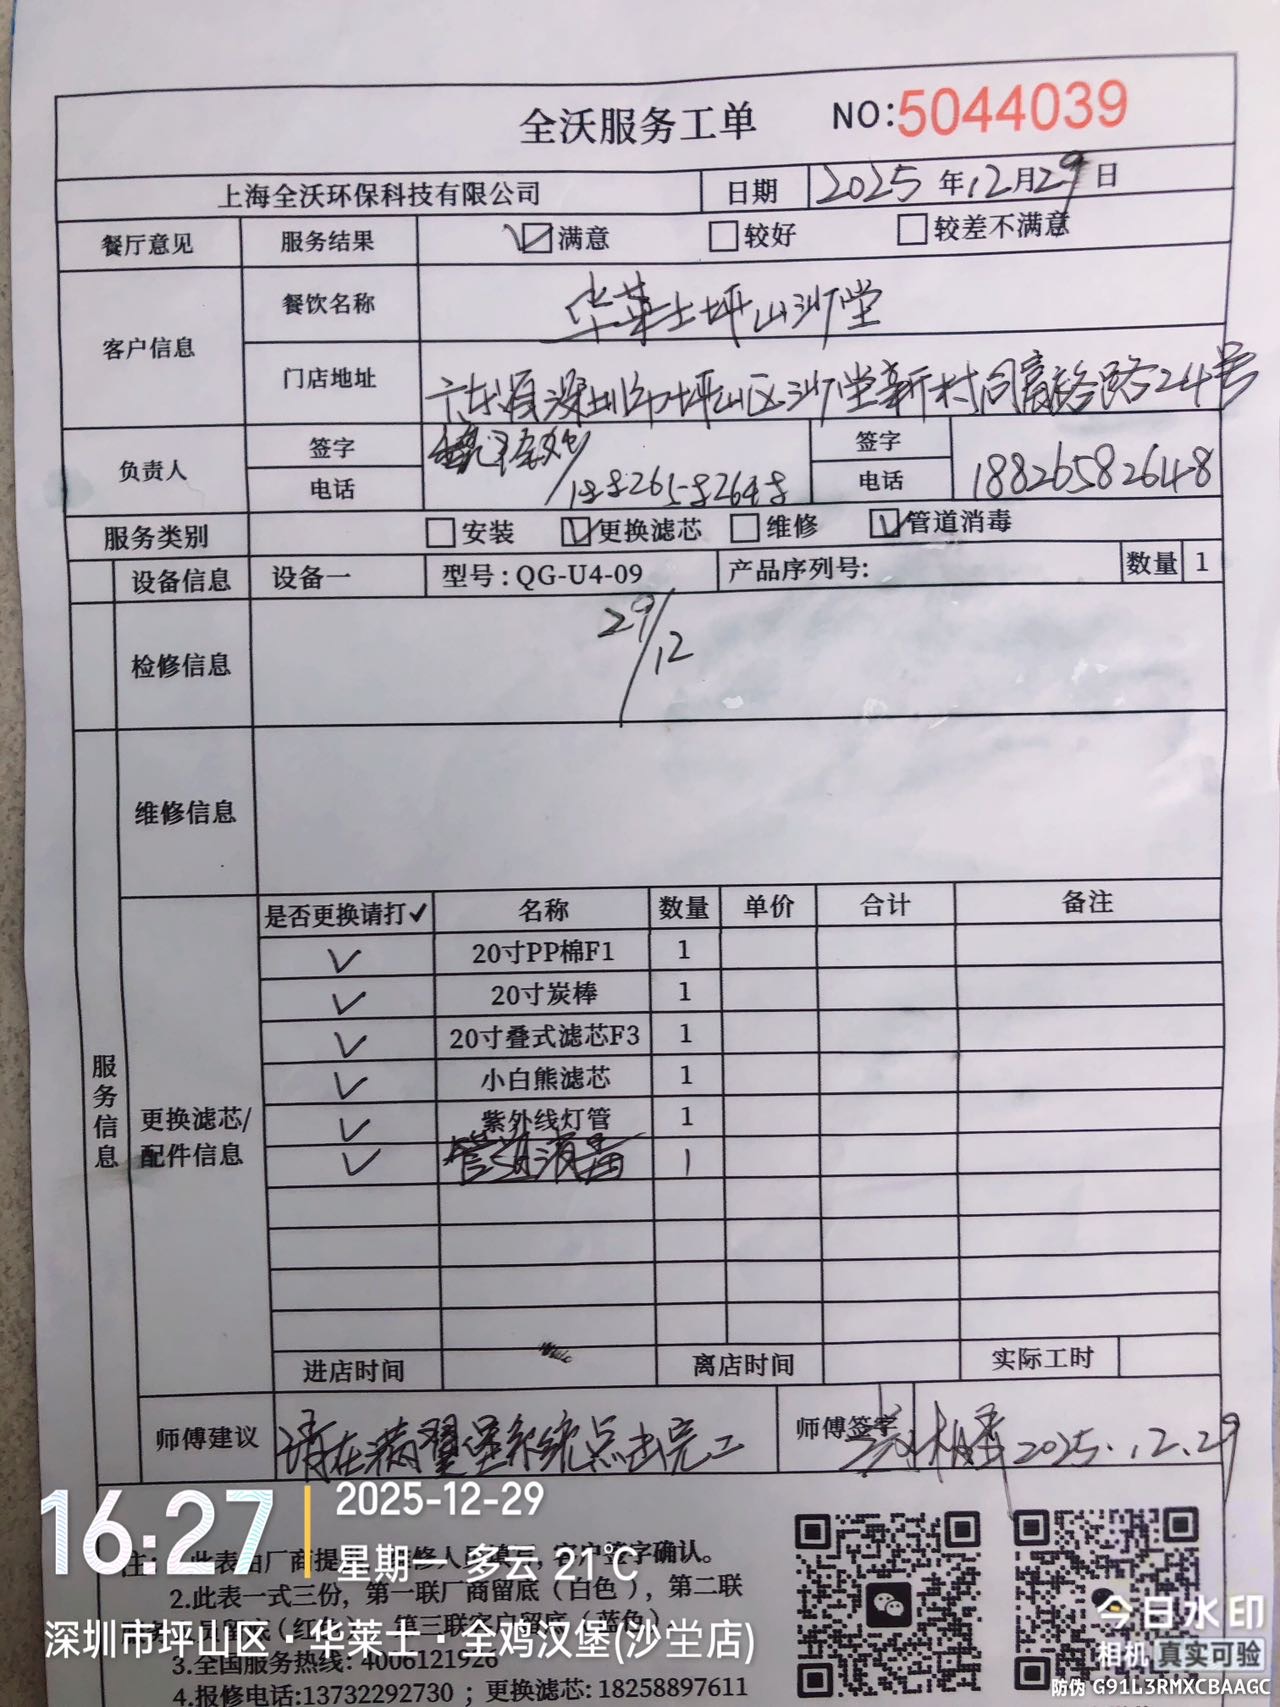 全沃服务工单 NO:5044039
上海全沃环保科技有限公司 日期 2025年12月29日
餐厅意见 服务结果 ☑满意 □较好 □较差不满意
客户信息 餐饮名称 华莱士坪山沙堂
门店地址 广东省深圳市坪山区沙堂新村同富裕路24号
负责人 签字 签字
电话 18826582648 电话 18826582648
服务类别 □安装 ☑更换滤芯 □维修 ☑管道消毒
设备信息 设备一 型号:QG-U4-09 产品序列号: 数量 1
检修信息 29/12
维修信息
服务信息
更换滤芯/
配件信息
是否更换请打✓ 名称 数量 单价 合计 备注
✓ 20寸PP棉F1 1
✓ 20寸炭棒 1
✓ 20寸叠式滤芯F3 1
✓ 小白熊滤芯 1
✓ 紫外线灯管 1
✓ 管道消毒 1
进店时间 离店时间 实际工时
师傅建议 请在 系统点击完工 师傅签字 2025.12.29
16:27 2025-12-29
星期一 多云 21℃
深圳市坪山区·华莱士·全鸡汉堡(沙坣店)
注: 此表由厂商提 客户签字确认。
2.此表一式三份，第一联厂商留底（白色），第二联
留底(红色) 第三联客户留底（蓝色）
3.全国服务热线: 4006121926
4.报修电话:13732292730；更换滤芯: 18258897611
今日水印
相机 真实可验
防伪 G91L3RMXCBAAGC